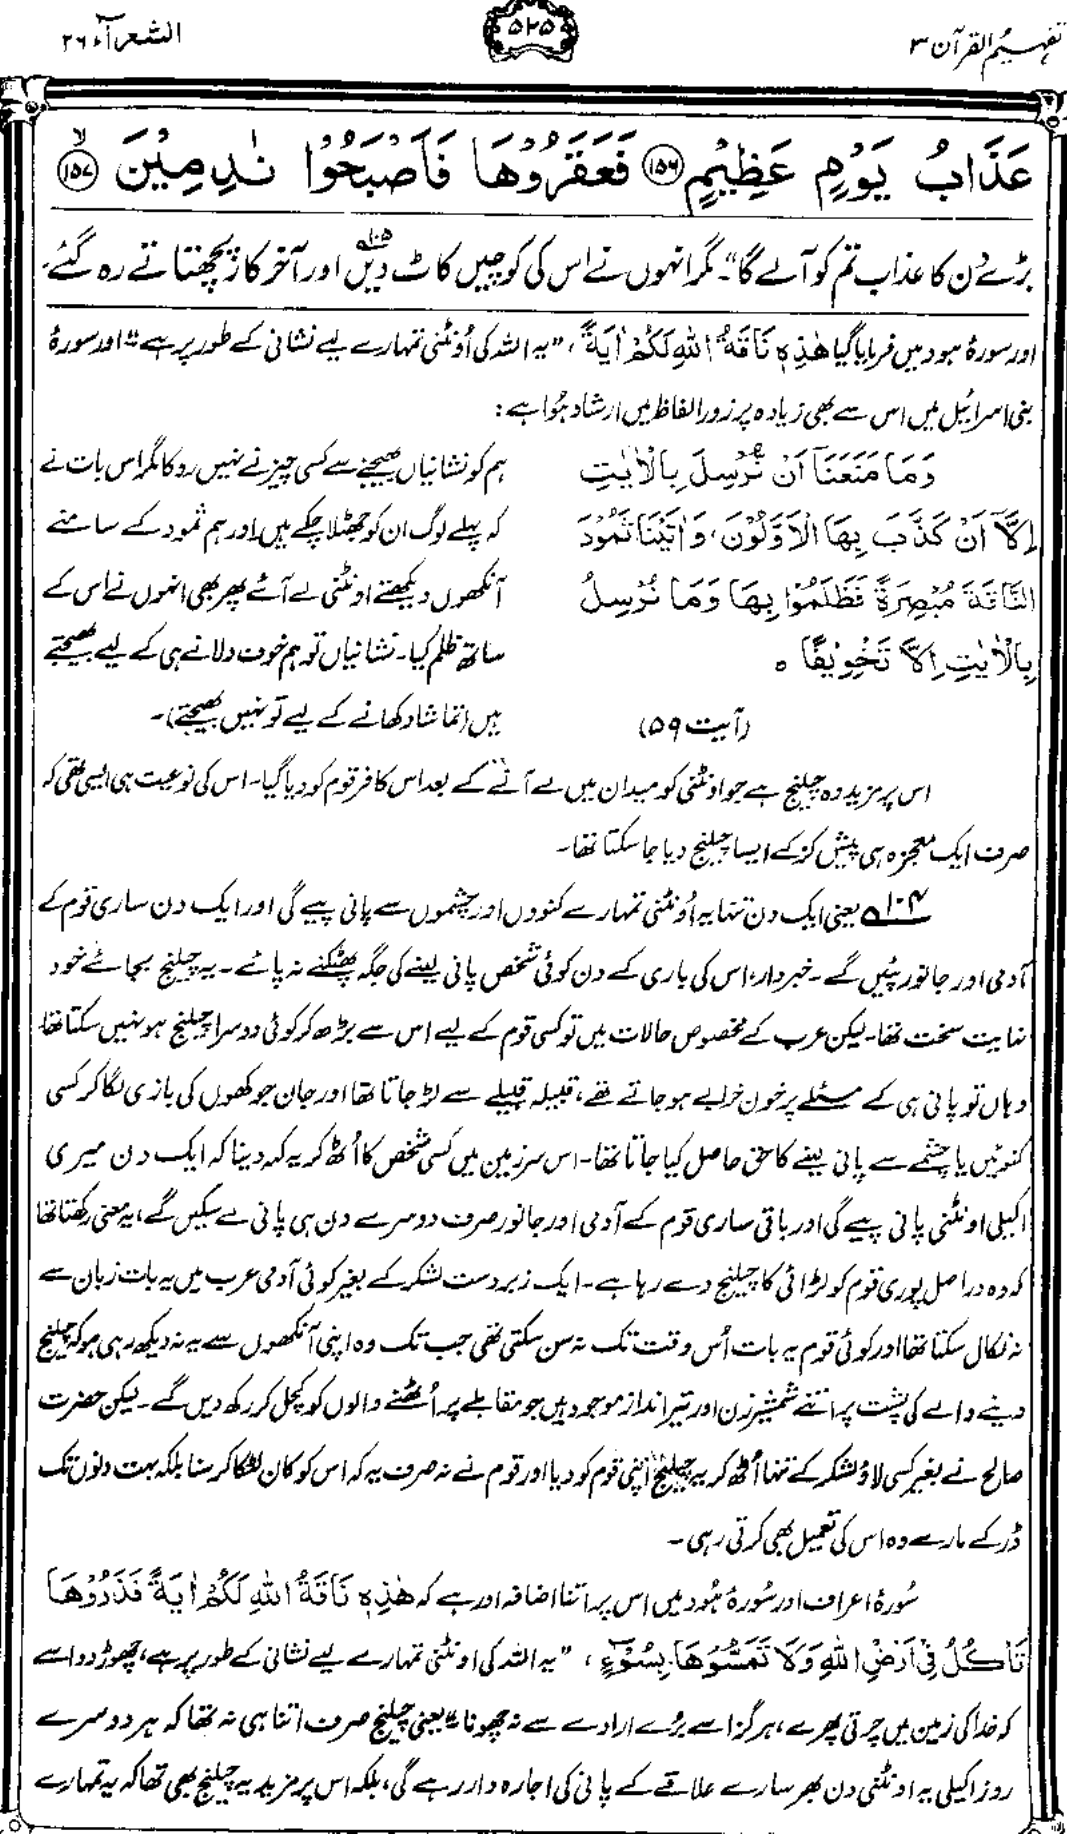 تفہیم القرآن ۳
۵۲۵
الشعرآء ۲۶
عَذَابُ يَوْمٍ عَظِيْمٍ ﴿۱۵۶﴾ فَعَقَرُوْهَا فَاَصْبَحُوْا نٰدِمِيْنَ ﴿۱۵۷﴾
بڑے دن کا عذاب تم کو آلے گا“۔ مگر انہوں نے اس کی کوچیں کاٹ دیں۱۰۵ اور آخر کار پچھتاتے رہ گئے۔
اور سورۂ ہود میں فرمایا گیا هٰذِهٖ نَاقَةُ اللهِ لَكُمْ اٰيَةً، ”یہ اللہ کی اُونٹنی تمہارے لیے نشانی کے طور پر ہے“ اور سورۂ
بنی اسرائیل میں اس سے بھی زیادہ پر زور الفاظ میں ارشاد ہُوا ہے:
وَمَا مَنَعَنَآ اَنْ نُّرْسِلَ بِالْاٰيٰتِ
اِلَّآ اَنْ كَذَّبَ بِهَا الْاَوَّلُوْنَ، وَاٰتَيْنَا ثَمُوْدَ
النَّاقَةَ مُبْصِرَةً فَظَلَمُوْا بِهَا وَمَا نُرْسِلُ
بِالْاٰيٰتِ اِلَّا تَخْوِيْفًا ہ
(آیت ۵۹)
ہم کو نشانیاں بھیجنے سے کسی چیز نے نہیں روکا مگر اس بات نے
کہ پہلے لوگ ان کو جھٹلا چکے ہیں اور ہم ثمود کے سامنے
آنکھوں دیکھتے اونٹنی لے آئے پھر بھی انہوں نے اس کے
ساتھ ظلم کیا۔ نشانیاں تو ہم خوف دلانے ہی کے لیے بھیجتے
ہیں (تماشا دکھانے کے لیے تو نہیں بھیجتے)۔
اس پر مزید وہ چیلنج ہے جو اونٹنی کو میدان میں لے آنے کے بعد اس کافر قوم کو دیا گیا۔ اس کی نوعیت ہی ایسی تھی کہ
صرف ایک معجزہ ہی پیش کر کے ایسا چیلنج دیا جا سکتا تھا۔
۱۰۴ یعنی ایک دن تنہا یہ اُونٹنی تمہارے کنووں اور چشموں سے پانی پیے گی اور ایک دن ساری قوم کے
آدمی اور جانور پئیں گے۔ خبردار، اس کی باری کے دن کوئی شخص پانی لینے کی جگہ پھٹکنے نہ پائے۔ یہ چیلنج بجائے خود
نہایت سخت تھا۔ لیکن عرب کے مخصوص حالات میں تو کسی قوم کے لیے اس سے بڑھ کر کوئی دوسرا چیلنج ہو نہیں سکتا تھا
وہاں تو پانی ہی کے مسئلے پر خون خرابے ہو جاتے تھے، قبیلہ قبیلے سے لڑ جاتا تھا اور جان جوکھوں کی بازی لگا کر کسی
کنوئیں یا چشمے سے پانی پینے کا حق حاصل کیا جاتا تھا۔ اس سرزمین میں کسی شخص کا اُٹھ کر یہ کہہ دینا کہ ایک دن میری
اکیلی اونٹنی پانی پیے گی اور باقی ساری قوم کے آدمی اور جانور صرف دوسرے دن ہی پانی لے سکیں گے، یہ معنی رکھتا تھا
کہ وہ دراصل پوری قوم کو لڑائی کا چیلنج دے رہا ہے۔ ایک زبردست لشکر کے بغیر کوئی آدمی عرب میں یہ بات زبان سے
نہ نکال سکتا تھا اور کوئی قوم یہ بات اُس وقت تک نہ سن سکتی تھی جب تک وہ اپنی آنکھوں سے یہ نہ دیکھ رہی ہو کہ چیلنج
دینے والے کی پشت پر اتنے شمشیر زن اور تیر انداز موجود ہیں جو مقابلے پر اُٹھنے والوں کو کچل کر رکھ دیں گے۔ لیکن حضرت
صالح نے بغیر کسی لاؤ لشکر کے تنہا اُٹھ کر یہ چیلنج اپنی قوم کو دیا اور قوم نے نہ صرف یہ کہ اس کو کان لٹکا کر سنا بلکہ بہت دنوں تک
ڈر کے مارے وہ اس کی تعمیل بھی کرتی رہی۔
سُورۂ اعراف اور سُورۂ ہُود میں اس پر اتنا اضافہ اور ہے کہ هٰذِهٖ نَاقَةُ اللهِ لَكُمْ اٰيَةً فَذَرُوْهَا
تَأْكُلْ فِيْٓ اَرْضِ اللهِ وَلَا تَمَسُّوْهَا بِسُوْٓءٍ، ”یہ اللہ کی اونٹنی تمہارے لیے نشانی کے طور پر ہے، چھوڑ دو اسے
کہ خدا کی زمین میں چرتی پھرے، ہرگز اسے بُرے ارادے سے نہ چھونا“ یعنی چیلنج صرف اتنا ہی نہ تھا کہ ہر دوسرے
روز اکیلی یہ اونٹنی دن بھر سارے علاقے کے پانی کی اجارہ دار رہے گی، بلکہ اس پر مزید یہ چیلنج بھی تھا کہ یہ تمہارے